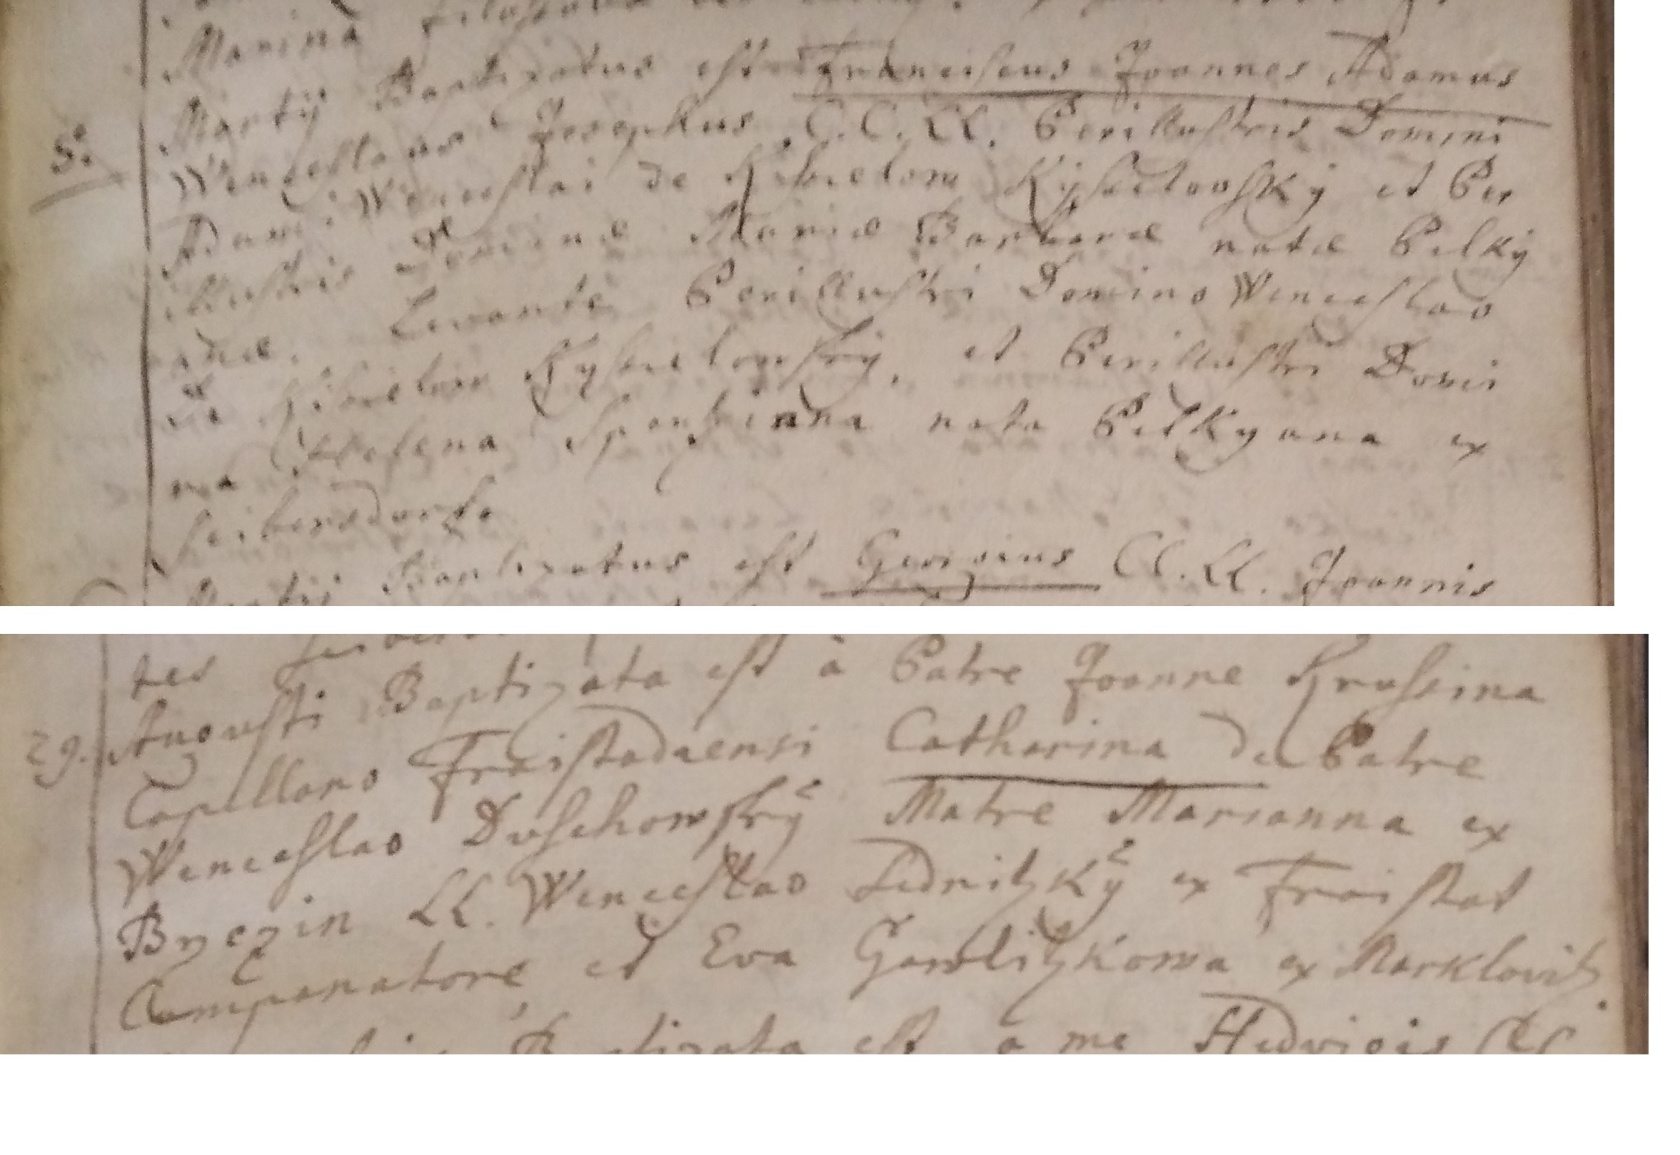 Marina
5. Martij Baptizatus est Franciscus Joannes Adamus
Wenceslaus Josephus C.C. LL. Perillustris Domini
Adami Wenceslai de Kiselow Kyselowsky et Per
illustris Dominæ Mariæ Barbaræ natæ Pelky
anæ. Levante Perillustri Domino Wenceslao
de Kisielow Kyselowsky, et Perillustri Domi
na Helena nata Pelkyana ex
Seibersdorf.
Martij Baptizatus est Georgius CC. LL. Joannis
tes
29. Augusti Baptizata est à Patre Joanne Krassina
Capellano Fraistadensi Catharina de Patre
Wenceslao Duschowsky Matre Marianna ex
Bzezin LL. Wenceslao Sednitzky ex Fraistat
Campanatore, et Eva Gawlitzkowa ex Marklovitz.
Baptizata est a me Hedvigis CC